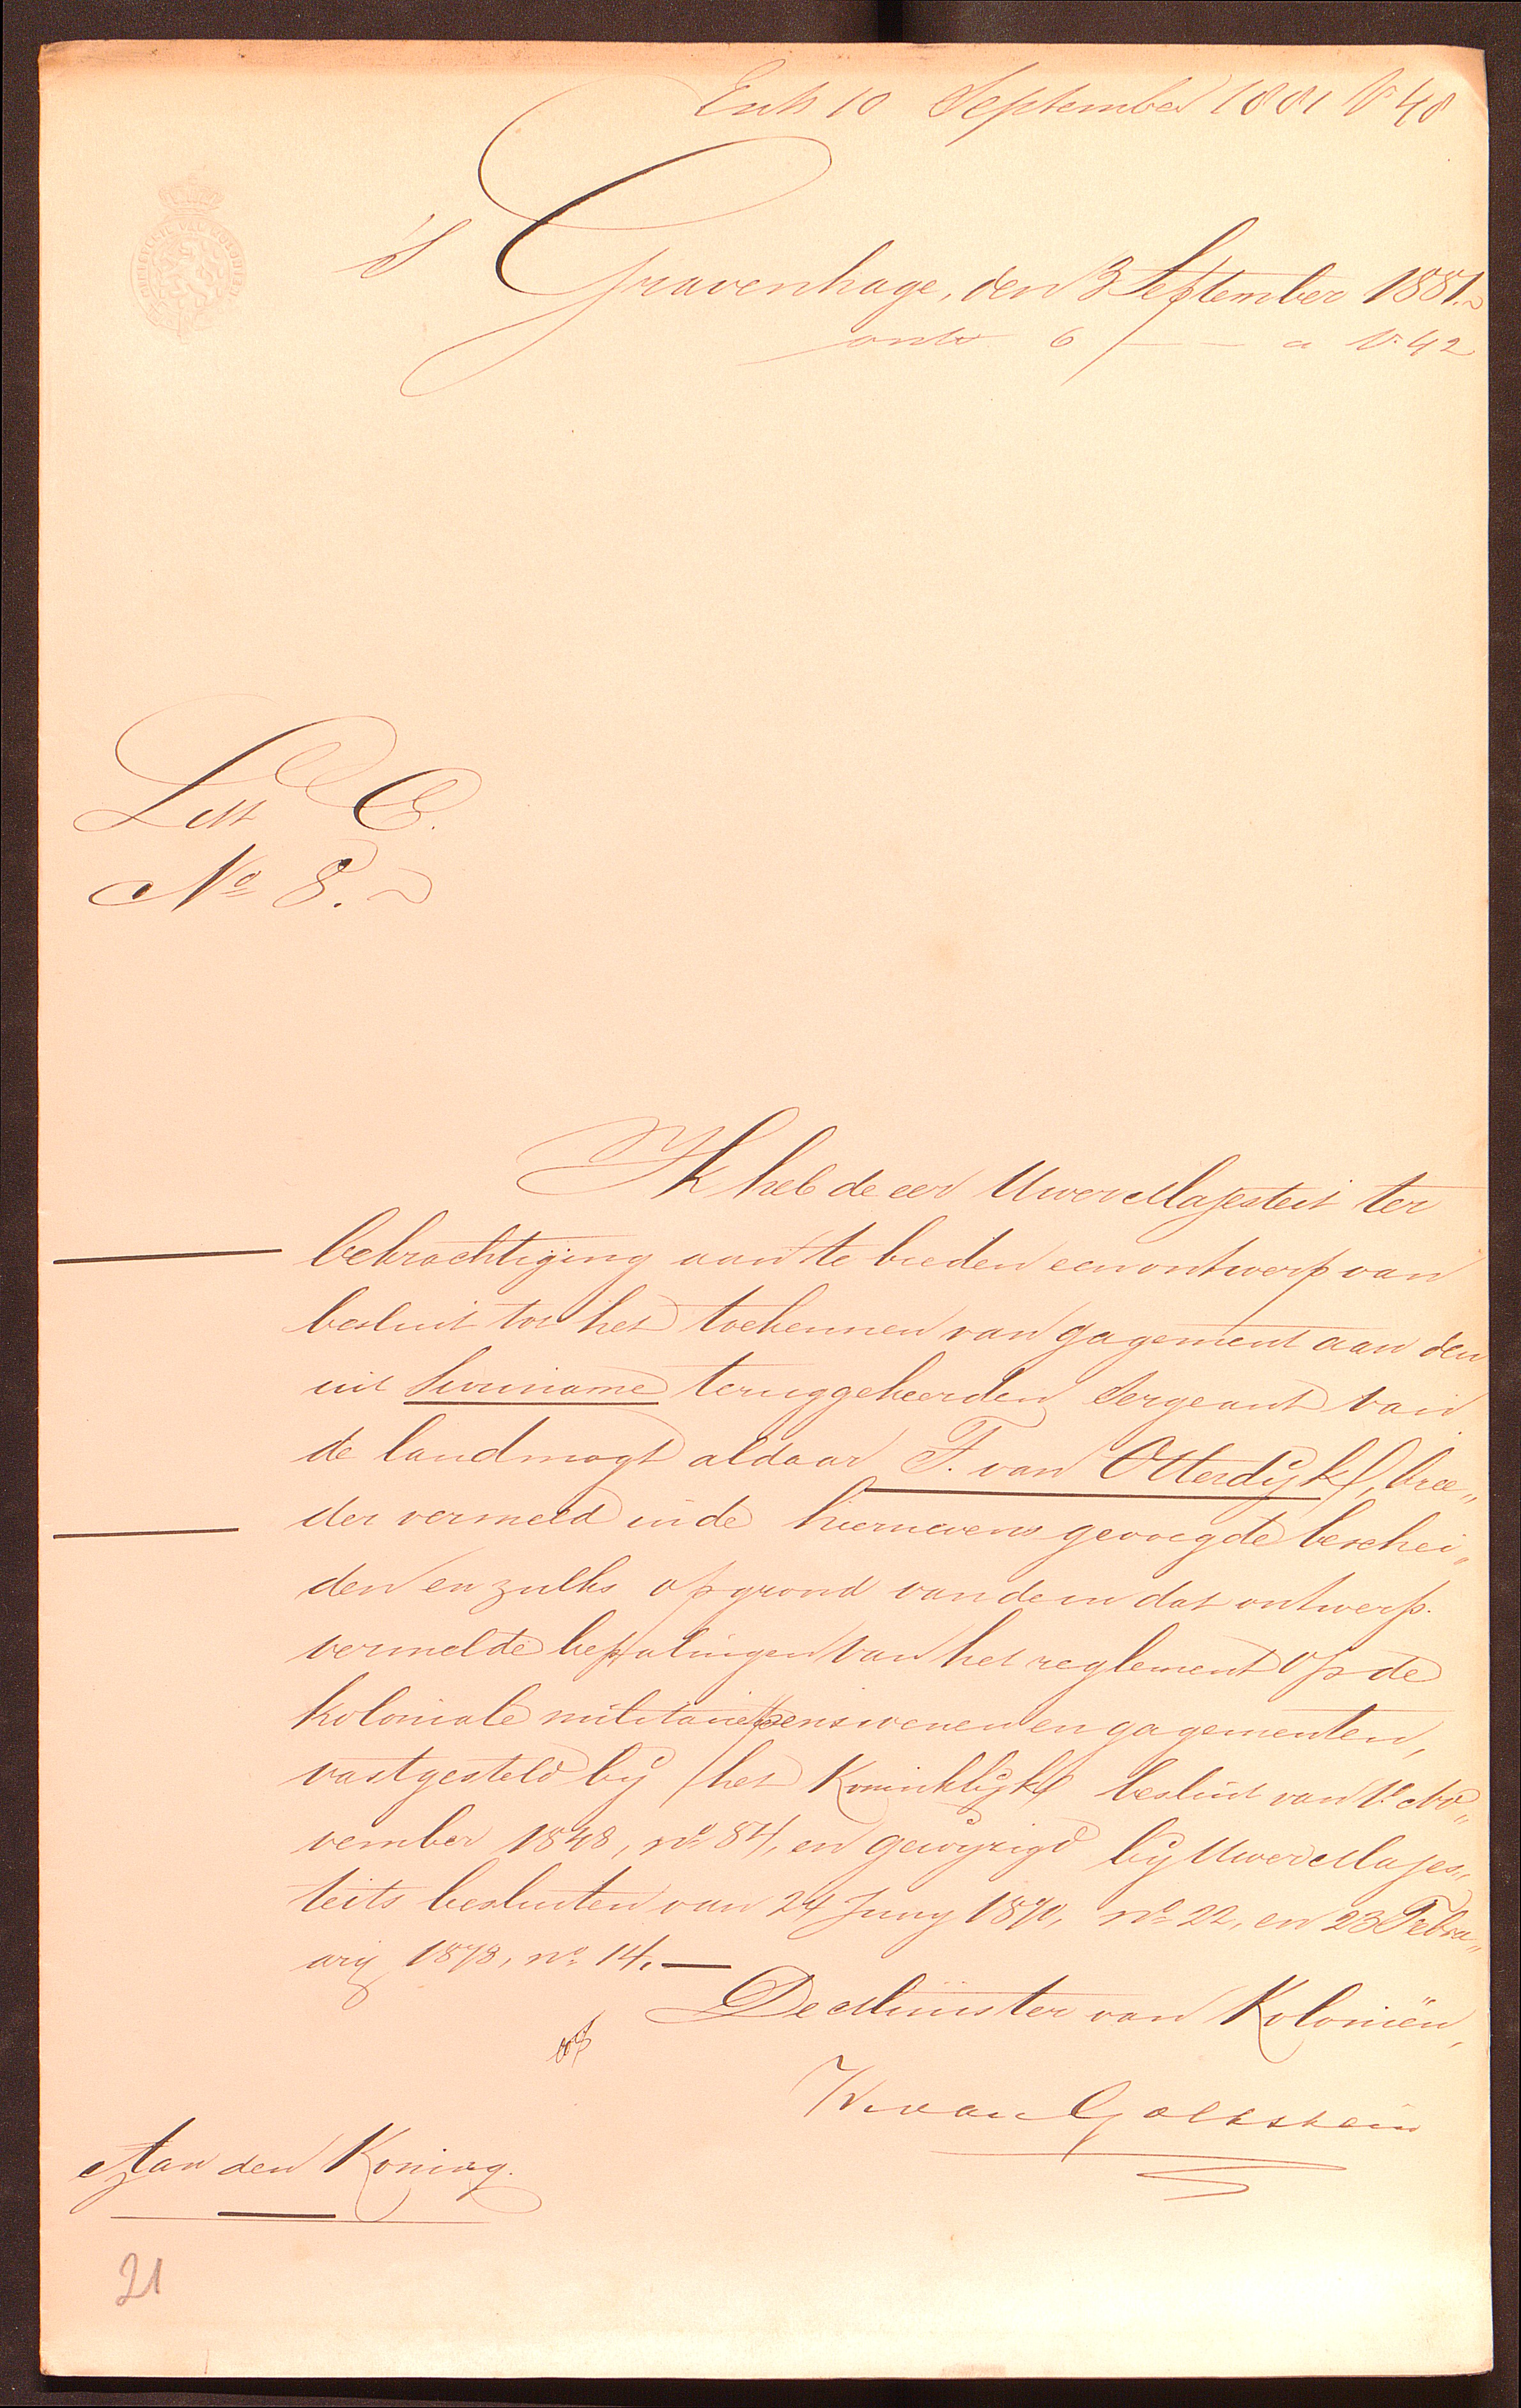 Exh 10 September 1881 No 48
's Gravenhage, den 3 September 1881.
antw 6 - - a No 42
Litt C.
No 8.
Ik heb de eer Uwe Majesteit ter
bekrachtiging aan te bieden een ontwerp van
besluit tot het toekennen van gagement aan den
uit Suriname teruggekeerden Sergeant van
de landmagt aldaar F. van Otterdijk, bree„
der vermeld in de hiernevens gevoegde beschei„
den en zulks op grond van de in dat ontwerp
vermelde bepalingen van het reglement op de
koloniale militaire pensioenen en gagementen,
vastgesteld bij het Koninklijk besluit van 1e No„
vember 1848, no 84, en gewijzigd bij Uwer Majes„
teits besluiten van 24 Juny 1870, no 22, en 23 Febru„
arij 1878, no 14.—
De Minister van Koloniën,
W. van Goltstein
Aan den Koning.
21